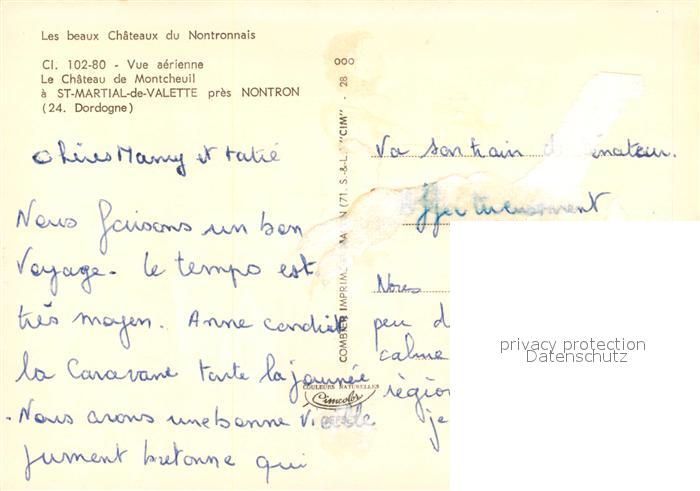 Les beaux Châteaux du Nontronnais
Cl. 102-80 - Vue aérienne
Le Château de Montcheuil
à ST-MARTIAL-de-VALETTE près NONTRON
(24. Dordogne)
Chères Mamy et tatie
Nous faisons un bon
Voyage. le temps est
très moyen. Anne conduit
la Caravane toute la journée
. Nous avons une bonne vieille
jument bretonne qui
000
COMBIER IMPRIMEUR MACON (71. S.-&-L.) "CIM" - 28
COULEURS NATURELLES
Cimcolor
Va son train de sénateur.
Affectueusement
Nous
peu d
calme
région
je
privacy protection
Datenschutz